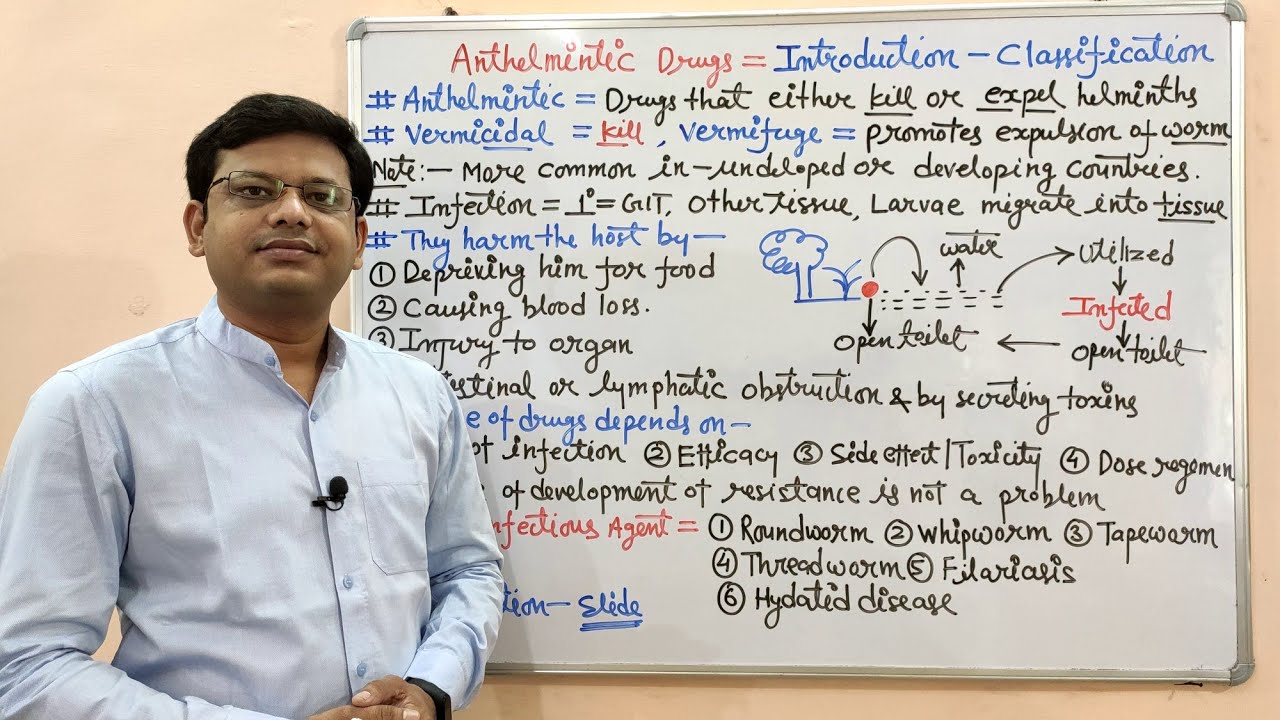 Anthelmintic Drugs = Introduction - Classification
# Anthelmintic = Drugs that either kill or expel helminths
# Vermicidal = kill, Vermifuge = promotes expulsion of worm
Note:- More common in - undeloped or developing Countries.
# Infection = 1° = GIT, Other tissue, Larvae migrate into tissue
# They harm the host by -
① Depriving him for food
② Causing blood loss.
③ Injury to organ
water
Utilized
Infected
Open toilet
Open toilet
stinal or lymphatic obstruction & by secreting toxins
e of drugs depends on -
of infection ② Efficacy ③ Side effect / Toxicity ④ Dose regemen
of development of resistance is not a problem
nfectious Agent = ① Roundworm ② Whipworm ③ Tapewarm
④ Threadworm ⑤ Filariasis
⑥ Hydated disease
tion - Slide